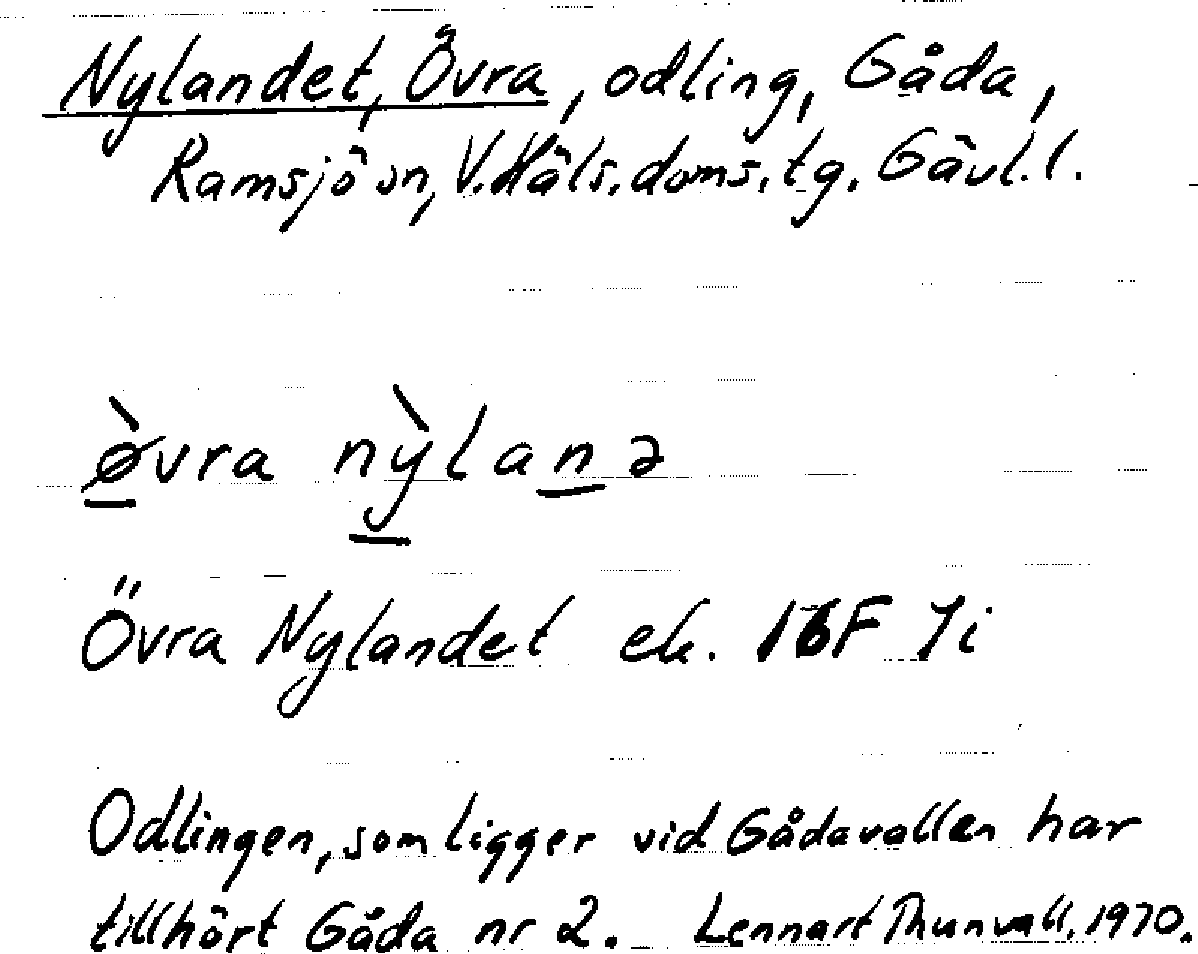 Nylandet, Övra, odling, Gåda,
Ramsjö sn, V.Häls.doms.tg. Gävl.l.
ø̀vra nỳlanə
Övra Nylandet ek. 16F 7i
Odlingen, som ligger vid Gådavallen har
tillhört Gåda nr 2. Lennart Thunvall. 1970.